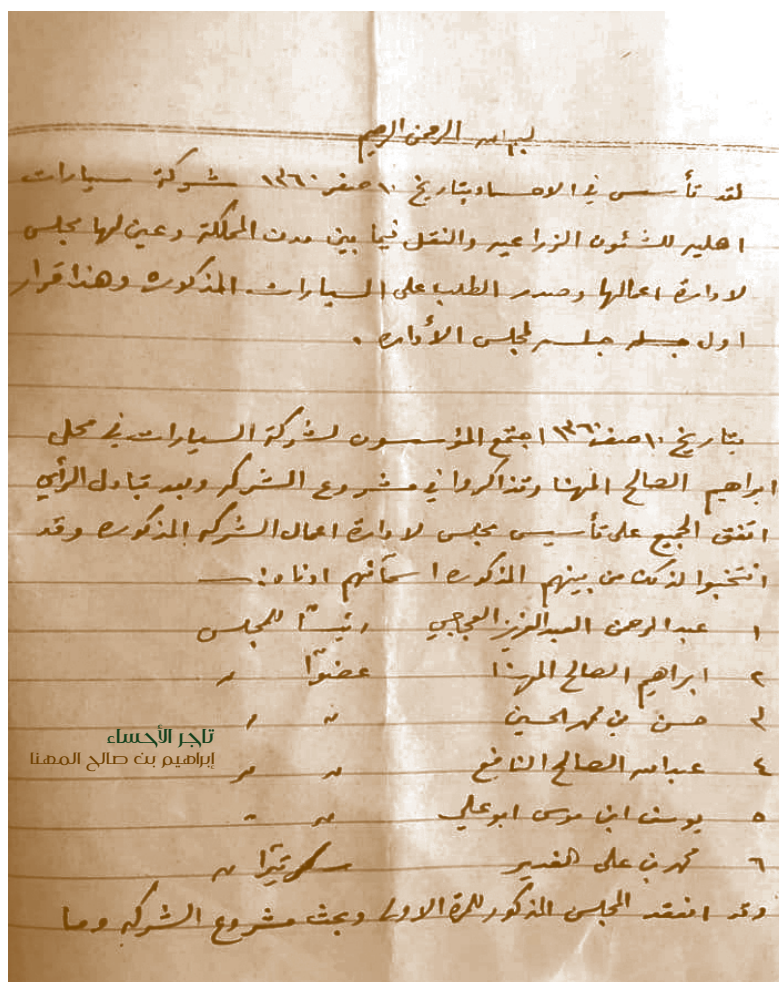 بسم الله الرحمن الرحيم
لقد تأسس في الاحساء بتاريخ ١٠ صفر ١٣٦٠ شركة سيارات
اهليه للشئون الزراعيه والنقل فيما بين مدن المملكة وعين لها مجلس
لادارة اعمالها وصدر الطلب على السيارات المذكوره وهذا قرار
اول جلسه لمجلس الأداره .
بتاريخ ١٠ صفر ١٣٦٠ اجتمع المؤسسون لشركة السيارات في محل
ابراهيم الصالح المهنا وتذاكروا في مشروع الشركه وبعد تبادل الرأي
اتفق الجميع على تأسيس مجلس لادارة اعمال الشركه المذكوره وقد
انتخبوا لذلك من بينهم المذكوره اسمآئهم ادناه :ـ
١ عبدالرحمن العبدالعزيز العجاجي رئيسًا للمجلس
٢ ابراهيم الصالح المهنا عضوًا 〃
٣ حسن بن محمد الحسين 〃 〃
تاجر الأحساء
إبراهيم بن صالح المهنا
٤ عبدالله الصالح النافع 〃 〃
٥ يوسف ابن موسى ابو علي 〃 〃
٦ محمد بن علي الغدير سكرتيرًا 〃
وقد انعقد المجلس المذكور للمرة الاولى وبحث مشروع الشركه وما